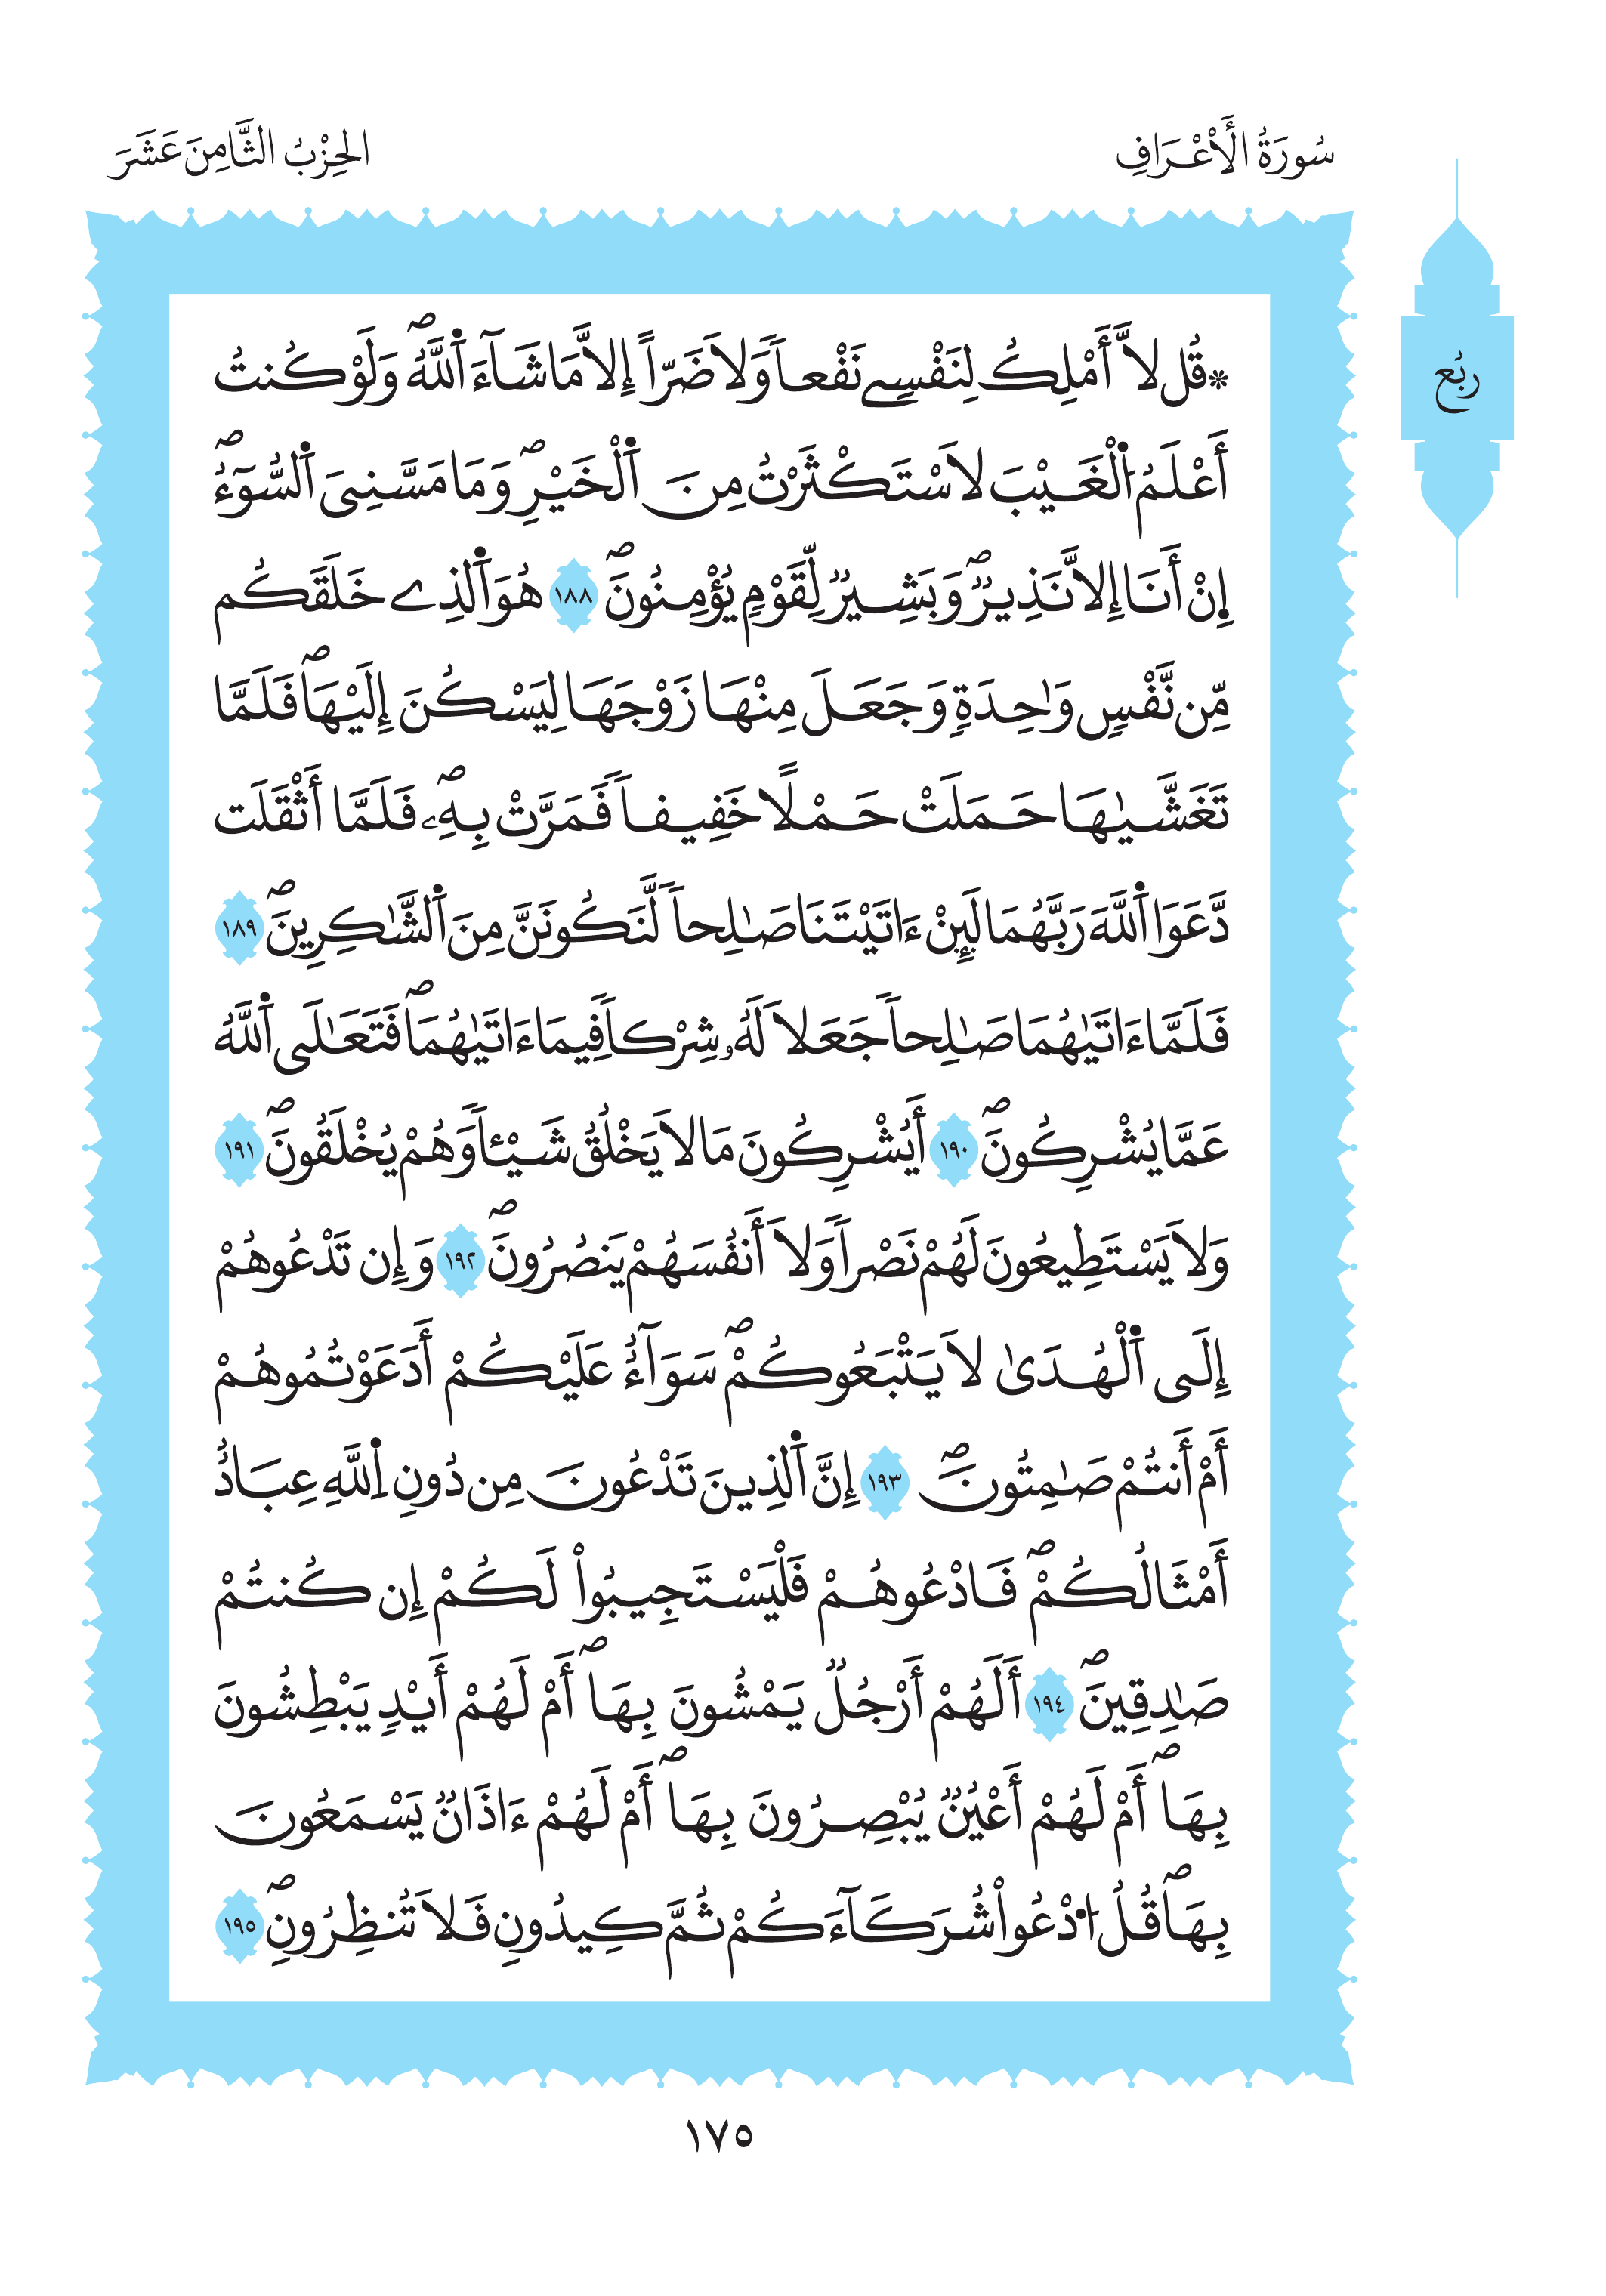 سُورَةُ الْأَعْرَافِ
الحِزْبُ الثَّامِنَ عَشَرَ
رُبُع
* قُل لَّآ أَمْلِكُ لِنَفْسِے نَفْعاٗ وَلَا ضَرّاً إِلَّا مَا شَآءَ اَ۬للَّهُۖ وَلَوْ كُنتُ
أَعْلَمُ اُ۬لْغَيْبَ لَاسْتَكْثَرْتُ مِنَ اَ۬لْخَيْرِۖ وَمَا مَسَّنِىَ اَ۬لسُّوٓءُۖ
اِنْ أَنَا إِلَّا نَذِيرٞۖ وَبَشِيرٞ لِّقَوْمٖ يُؤْمِنُونَۖ ١٨٨ هُوَ اَ۬لذِے خَلَقَكُم
مِّن نَّفْسٖ وَٰحِدَةٖ وَجَعَلَ مِنْهَا زَوْجَهَا لِيَسْكُنَ إِلَيْهَاۖ فَلَمَّا
تَغَشَّيٰهَا حَمَلَتْ حَمْلًا خَفِيفاٗ فَمَرَّتْ بِهِۦۖ فَلَمَّا أَثْقَلَت
دَّعَوَا اَ۬للَّهَ رَبَّهُمَا لَئِنْ ءَاتَيْتَنَا صَٰلِحاٗ لَّنَكُونَنَّ مِنَ اَ۬لشَّٰكِرِينَۖ ١٨٩
فَلَمَّا ءَاتَيٰهُمَا صَٰلِحاٗ جَعَلَا لَهُۥ شِرْكاٗ فِيمَا ءَاتَيٰهُمَاۖ فَتَعَٰلَى اَ۬للَّهُ
عَمَّا يُشْرِكُونَۖ ١٩٠ أَيُشْرِكُونَ مَا لَا يَخْلُقُ شَيْـٔاٗ وَهُمْ يُخْلَقُونَۖ ١٩١
وَلَا يَسْتَطِيعُونَ لَهُمْ نَصْراٗ وَلَا أَنفُسَهُمْ يَنصُرُونَۖ ١٩٢ وَإِن تَدْعُوهُمْ
إِلَى اَ۬لْهُدَىٰ لَا يَتْبَعُوكُمْۖ سَوَآءٌ عَلَيْكُمْ أَدَعَوْتُمُوهُمْ
أَمْ أَنتُمْ صَٰمِتُونَۖ ١٩٣ إِنَّ اَ۬لذِينَ تَدْعُونَ مِن دُونِ اِ۬للَّهِ عِبَادٌ
أَمْثَالُكُمْۖ فَادْعُوهُمْ فَلْيَسْتَجِيبُواْ لَكُمْ إِن كُنتُمْ
صَٰدِقِينَۖ ١٩٤ أَلَهُمْ أَرْجُلٞ يَمْشُونَ بِهَاۖ أَمْ لَهُمْ أَيْدٖ يَبْطِشُونَ
بِهَاۖ أَمْ لَهُمْ أَعْيُنٞ يُبْصِرُونَ بِهَاۖ أَمْ لَهُمْ ءَاذَانٞ يَسْمَعُونَ
بِهَاۖ قُلُ اُ۟دْعُواْ شُرَكَآءَكُمْ ثُمَّ كِيدُونِ فَلَا تُنظِرُونِۖ ١٩٥
١٧٥